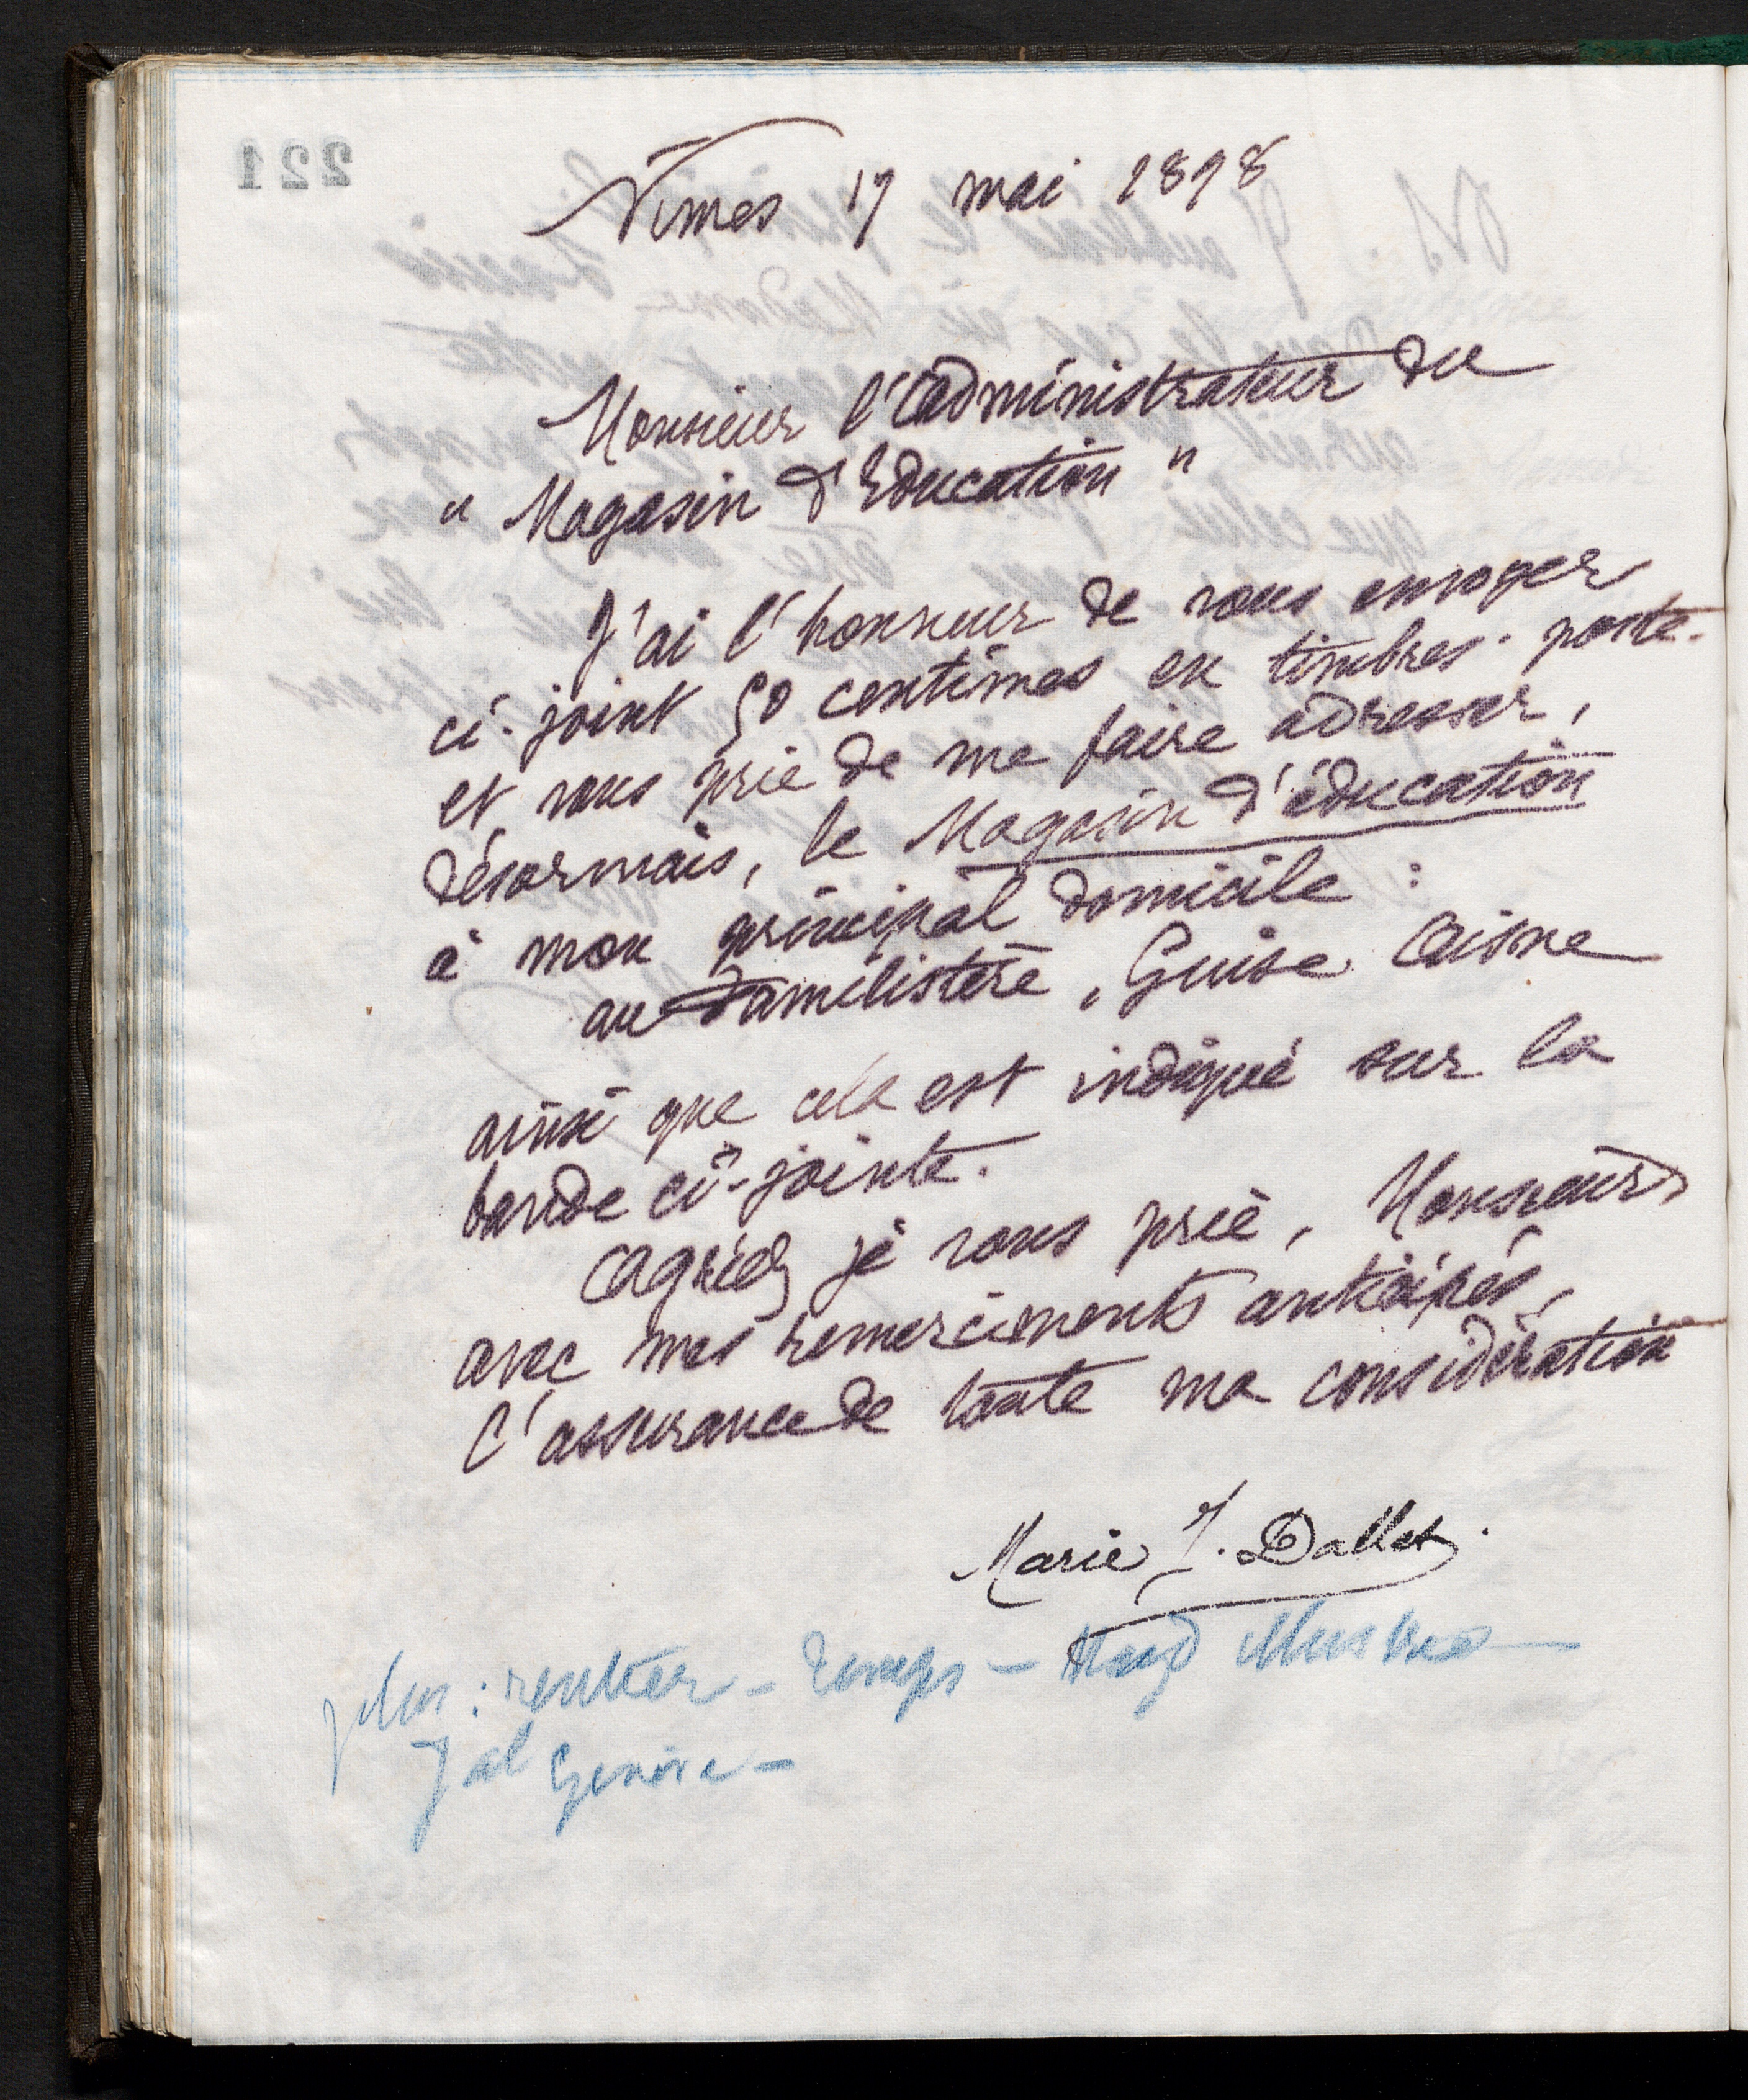 Nîmes 17 mai 1898
Monsieur l'administrateur du
" Magasin d'Education "
J'ai l'honneur de vous envoyer
ci-joint 50 centimes en timbres-poste
et vous prie de me faire adresser,
désormais, le Magasin d'éducation
à mon principal domicile :
au Familistère, Guise Aisne
ainsi que cela est indiqué sur la
bande ci-jointe.
Agréez je vous prie, Monsieur,
avec mes remerciments anticipés,
l'assurance de toute ma considération
Marie J. Dallet.
plus : rentier - Temps -
Jal Genève -
221